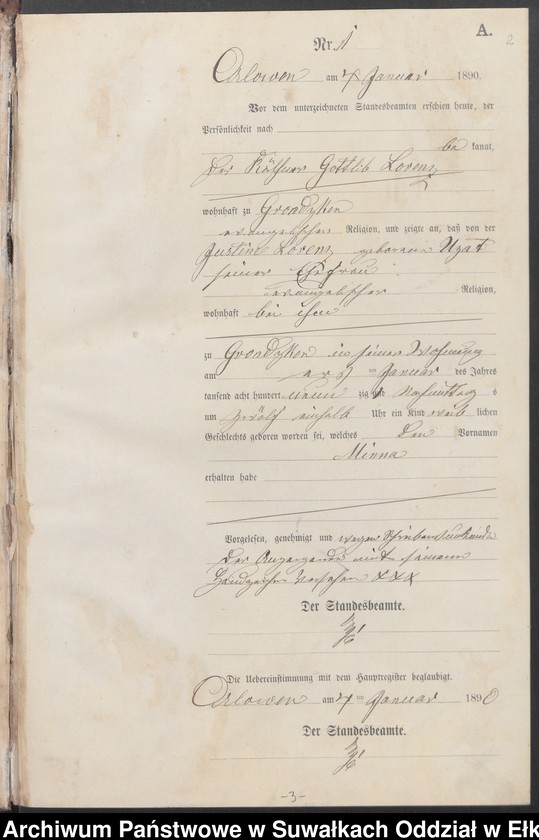 A.
2
Nr. 1
Orlowen am 7 Januar 1890.
Vor dem unterzeichneten Standesbeamten erschien heute, der
Persönlichkeit nach
be kannt,
der Käthner Gottlieb Lorenz
wohnhaft zu Grondzken
evangelischer Religion, und zeigte an, daß von der
Justine Lorenz geborenen
seiner Ehefrau
evangelischer Religion,
wohnhaft bei ihm
zu Grondzken in seiner Wohnung
am Januar des Jahres
tausend acht hundert neun zig Nachmittag s
um zwölf einhalb Uhr ein Kind weib lichen
Geschlechts geboren worden sei, welches den Vornamen
Minna
erhalten habe
Vorgelesen, genehmigt und wegen Schreibensunkunde
der Anzeigende mit seinem
Handzeichen versehen XXX
Der Standesbeamte.
Die Uebereinstimmung mit dem Hauptregister beglaubigt.
Orlowen am 7 ten Januar 1890
Der Standesbeamte.
-3-
Archiwum Państwowe w Suwałkach Oddział w Ełk